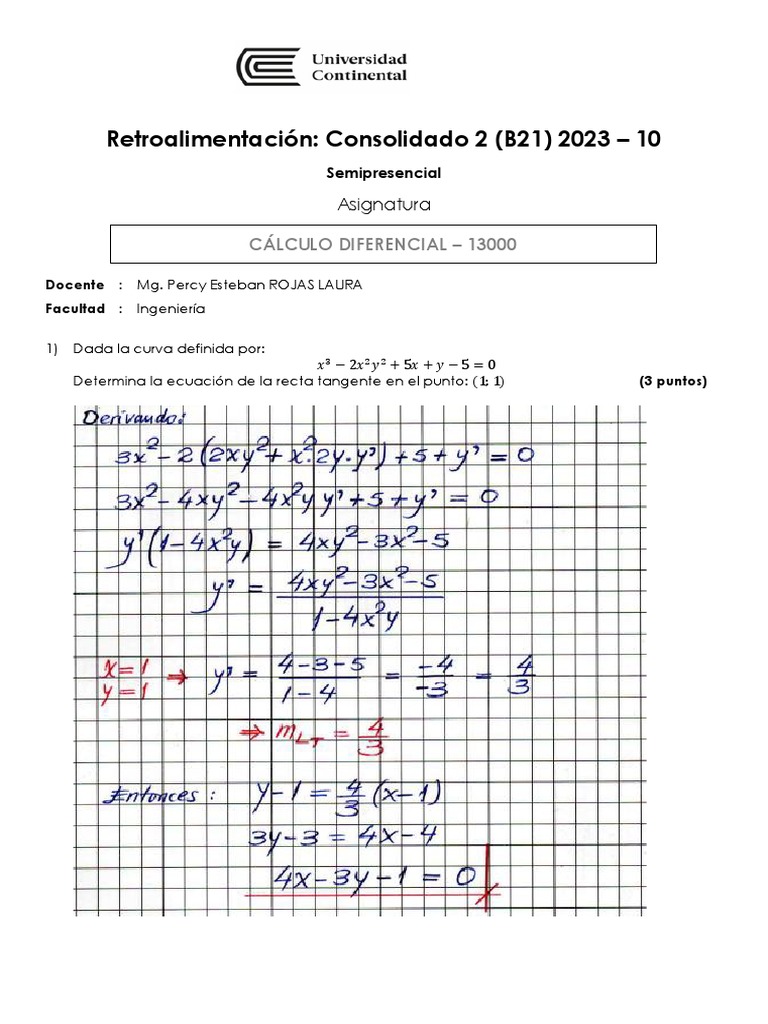 Universidad
Continental
Retroalimentación: Consolidado 2 (B21) 2023 – 10
Semipresencial
Asignatura
CÁLCULO DIFERENCIAL – 13000
Docente : Mg. Percy Esteban ROJAS LAURA
Facultad : Ingeniería
1) Dada la curva definida por:
x³ − 2x²y² + 5x + y − 5 = 0
Determina la ecuación de la recta tangente en el punto: (1; 1) (3 puntos)
Derivando:
3x² − 2(2xy² + x².2y.y') + 5 + y' = 0
3x² − 4xy² − 4x²y y' + 5 + y' = 0
y'(1 − 4x²y) = 4xy² − 3x² − 5
y' = (4xy² − 3x² − 5) / (1 − 4x²y)
x = 1
y = 1 ⇒ y' = (4 − 3 − 5) / (1 − 4) = −4 / −3 = 4/3
⇒ m_LT = 4/3
Entonces: y − 1 = 4/3 (x − 1)
3y − 3 = 4x − 4
4x − 3y − 1 = 0